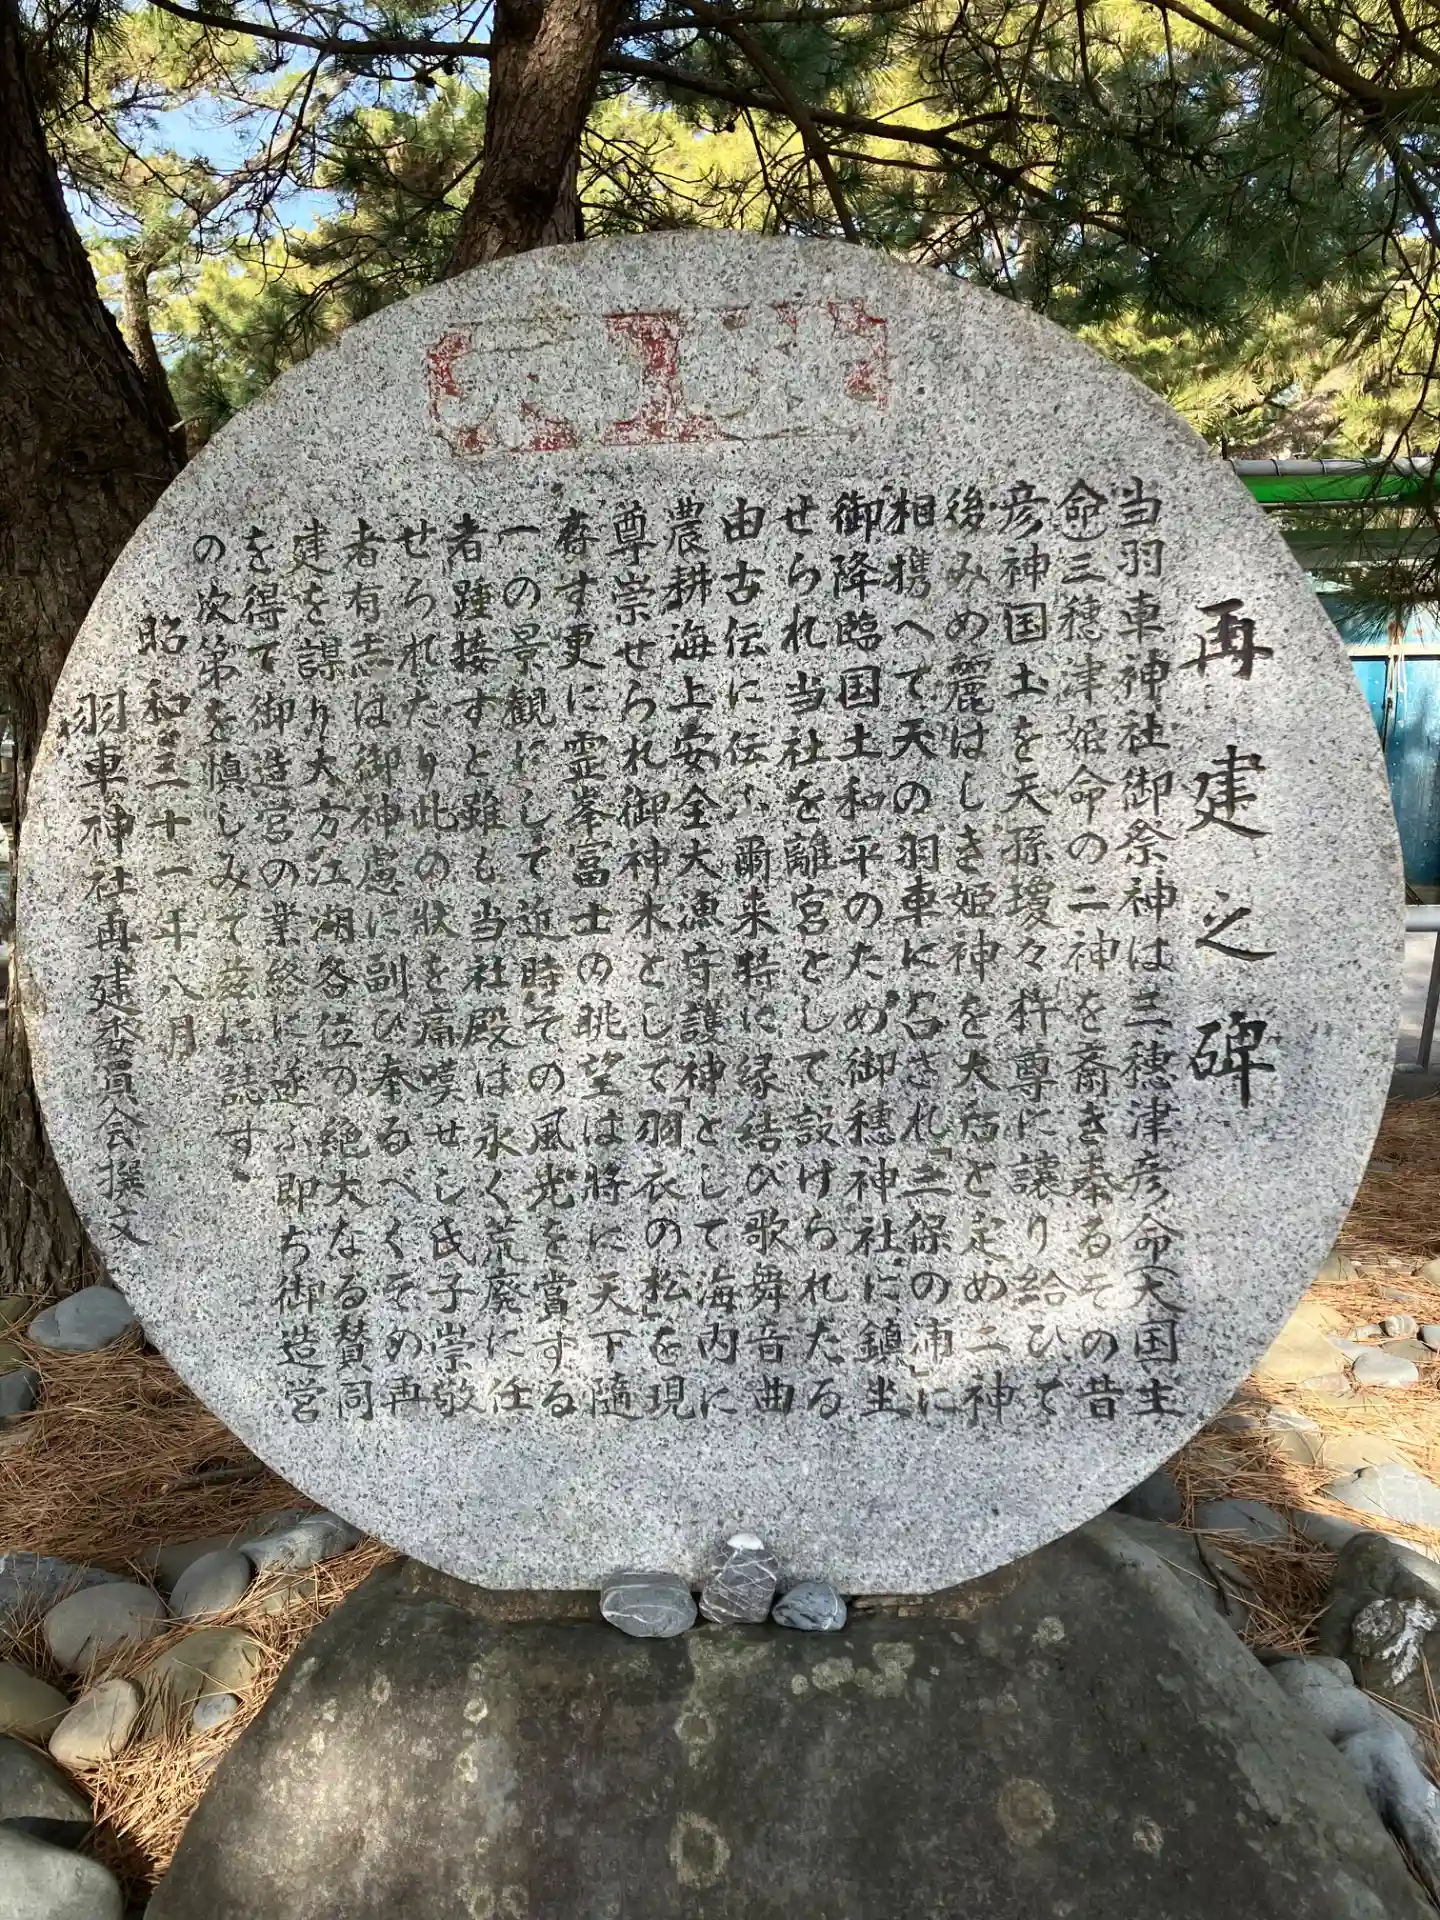 再建之碑
当羽車神社御祭神は三穂津彦命(大国主
命)三穂津姫命の二神を斎き奉るその昔
彦神国土を天孫瓊々杵尊に譲り給ひて
後みめ麗はしき姫神を大后と定め二神
相携へて天の羽車に召され「三保の浦」に
御降臨国土和平のため御穂神社に鎮坐
せられ当社を離宮として設けられたる
由古伝に伝ふ爾来特に縁結び歌舞音曲
農耕海上安全大漁守護神として海内に
尊崇せられ御神木として「羽衣の松」を現
存す更に霊峯富士の眺望は将に天下随
一の景観にして近時その風光を賞する
者踵接すと雖も当社殿は永く荒廃に任
せられたり此の状を痛嘆せし氏子崇敬
者有志は御神慮に副ひ奉るべくそめ再
建を謀り大方江湖各位の絶大なる賛同
を得て御造宮の業終に遂ふ即ち御造営
の次第を慎しみて茲に誌す
昭和三十一年八月
羽車神社再建委員会撰文